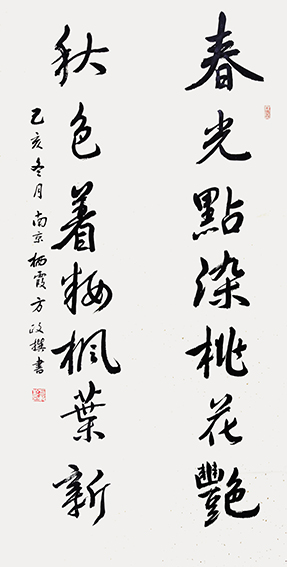 春光點染桃花艷
秋色着粧楓葉新
己亥冬月南京栖霞方政撰書